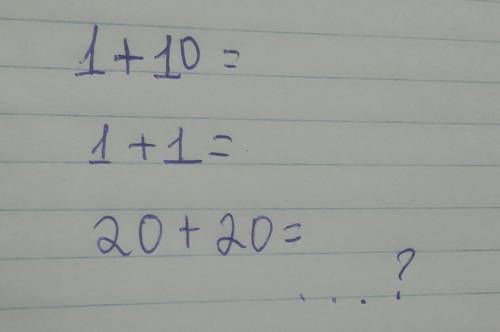 1+10=
1+1=
20+20=
...?